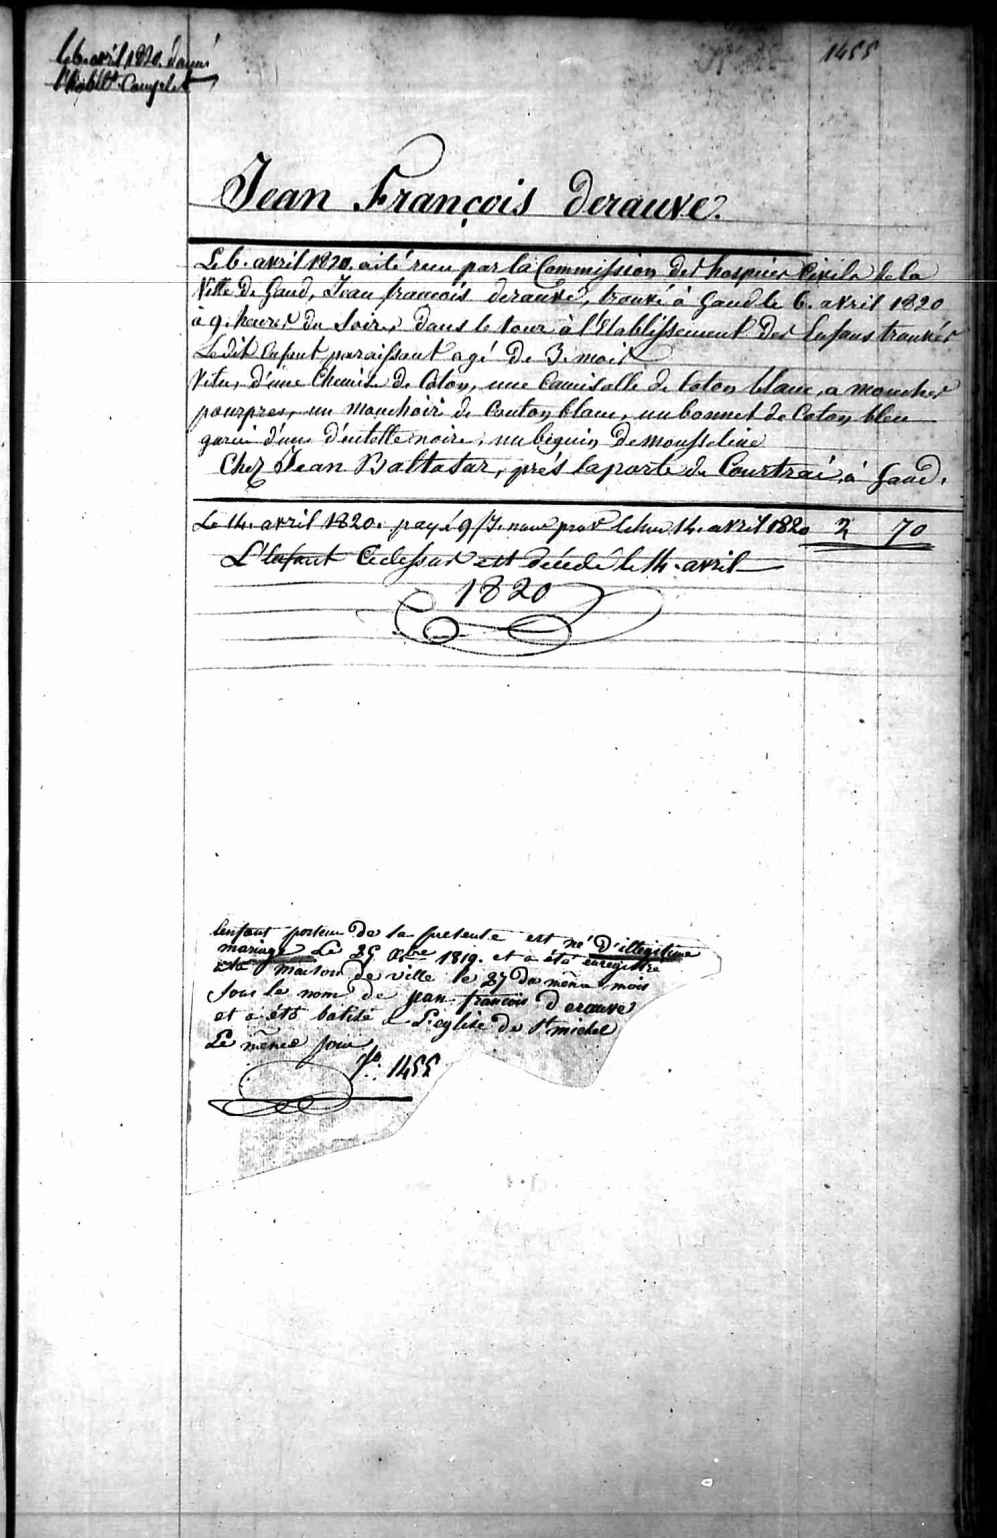 Le 6. avril 1820. donné
l'habill.t Complet
1455
Jean François derauve.
Le 6. avril 1820. a été reçu par la Commission des hospices Civils de la
Ville de Gand, Jean françois derauve, trouvé à Gand le 6. avril 1820
à 9. heures du Soir, dans le tour à l'Etablissement des Enfans trouvés
Le dit Enfant paraissant agé de 3. mois
Vetu, d'une Chemise de Coton, une Camisolle de Coton blanc, a mouches
pourpres, un mouchoir de Couton blanc, un bonnet de Coton bleu
garni d'une d'entelle noire, un béguin de mousseline
Chez Jean Baltasar, prés la porte de Courtrai, à Gand.
Le 14. avril 1820. payé 9/J. nour 14. avril 1820 2 70
L'Enfant Cidessus est décédé le 14. avril
1820
lenfant porteur de la presente est né D'illegitime
mariage Le 25 Xbre 1819. et a été enregistre
a la maison de ville le 27 du même mois
Sous le nom de jean francois derauve
et a été batisé a L'eglise de St michel
Le même jour
1455